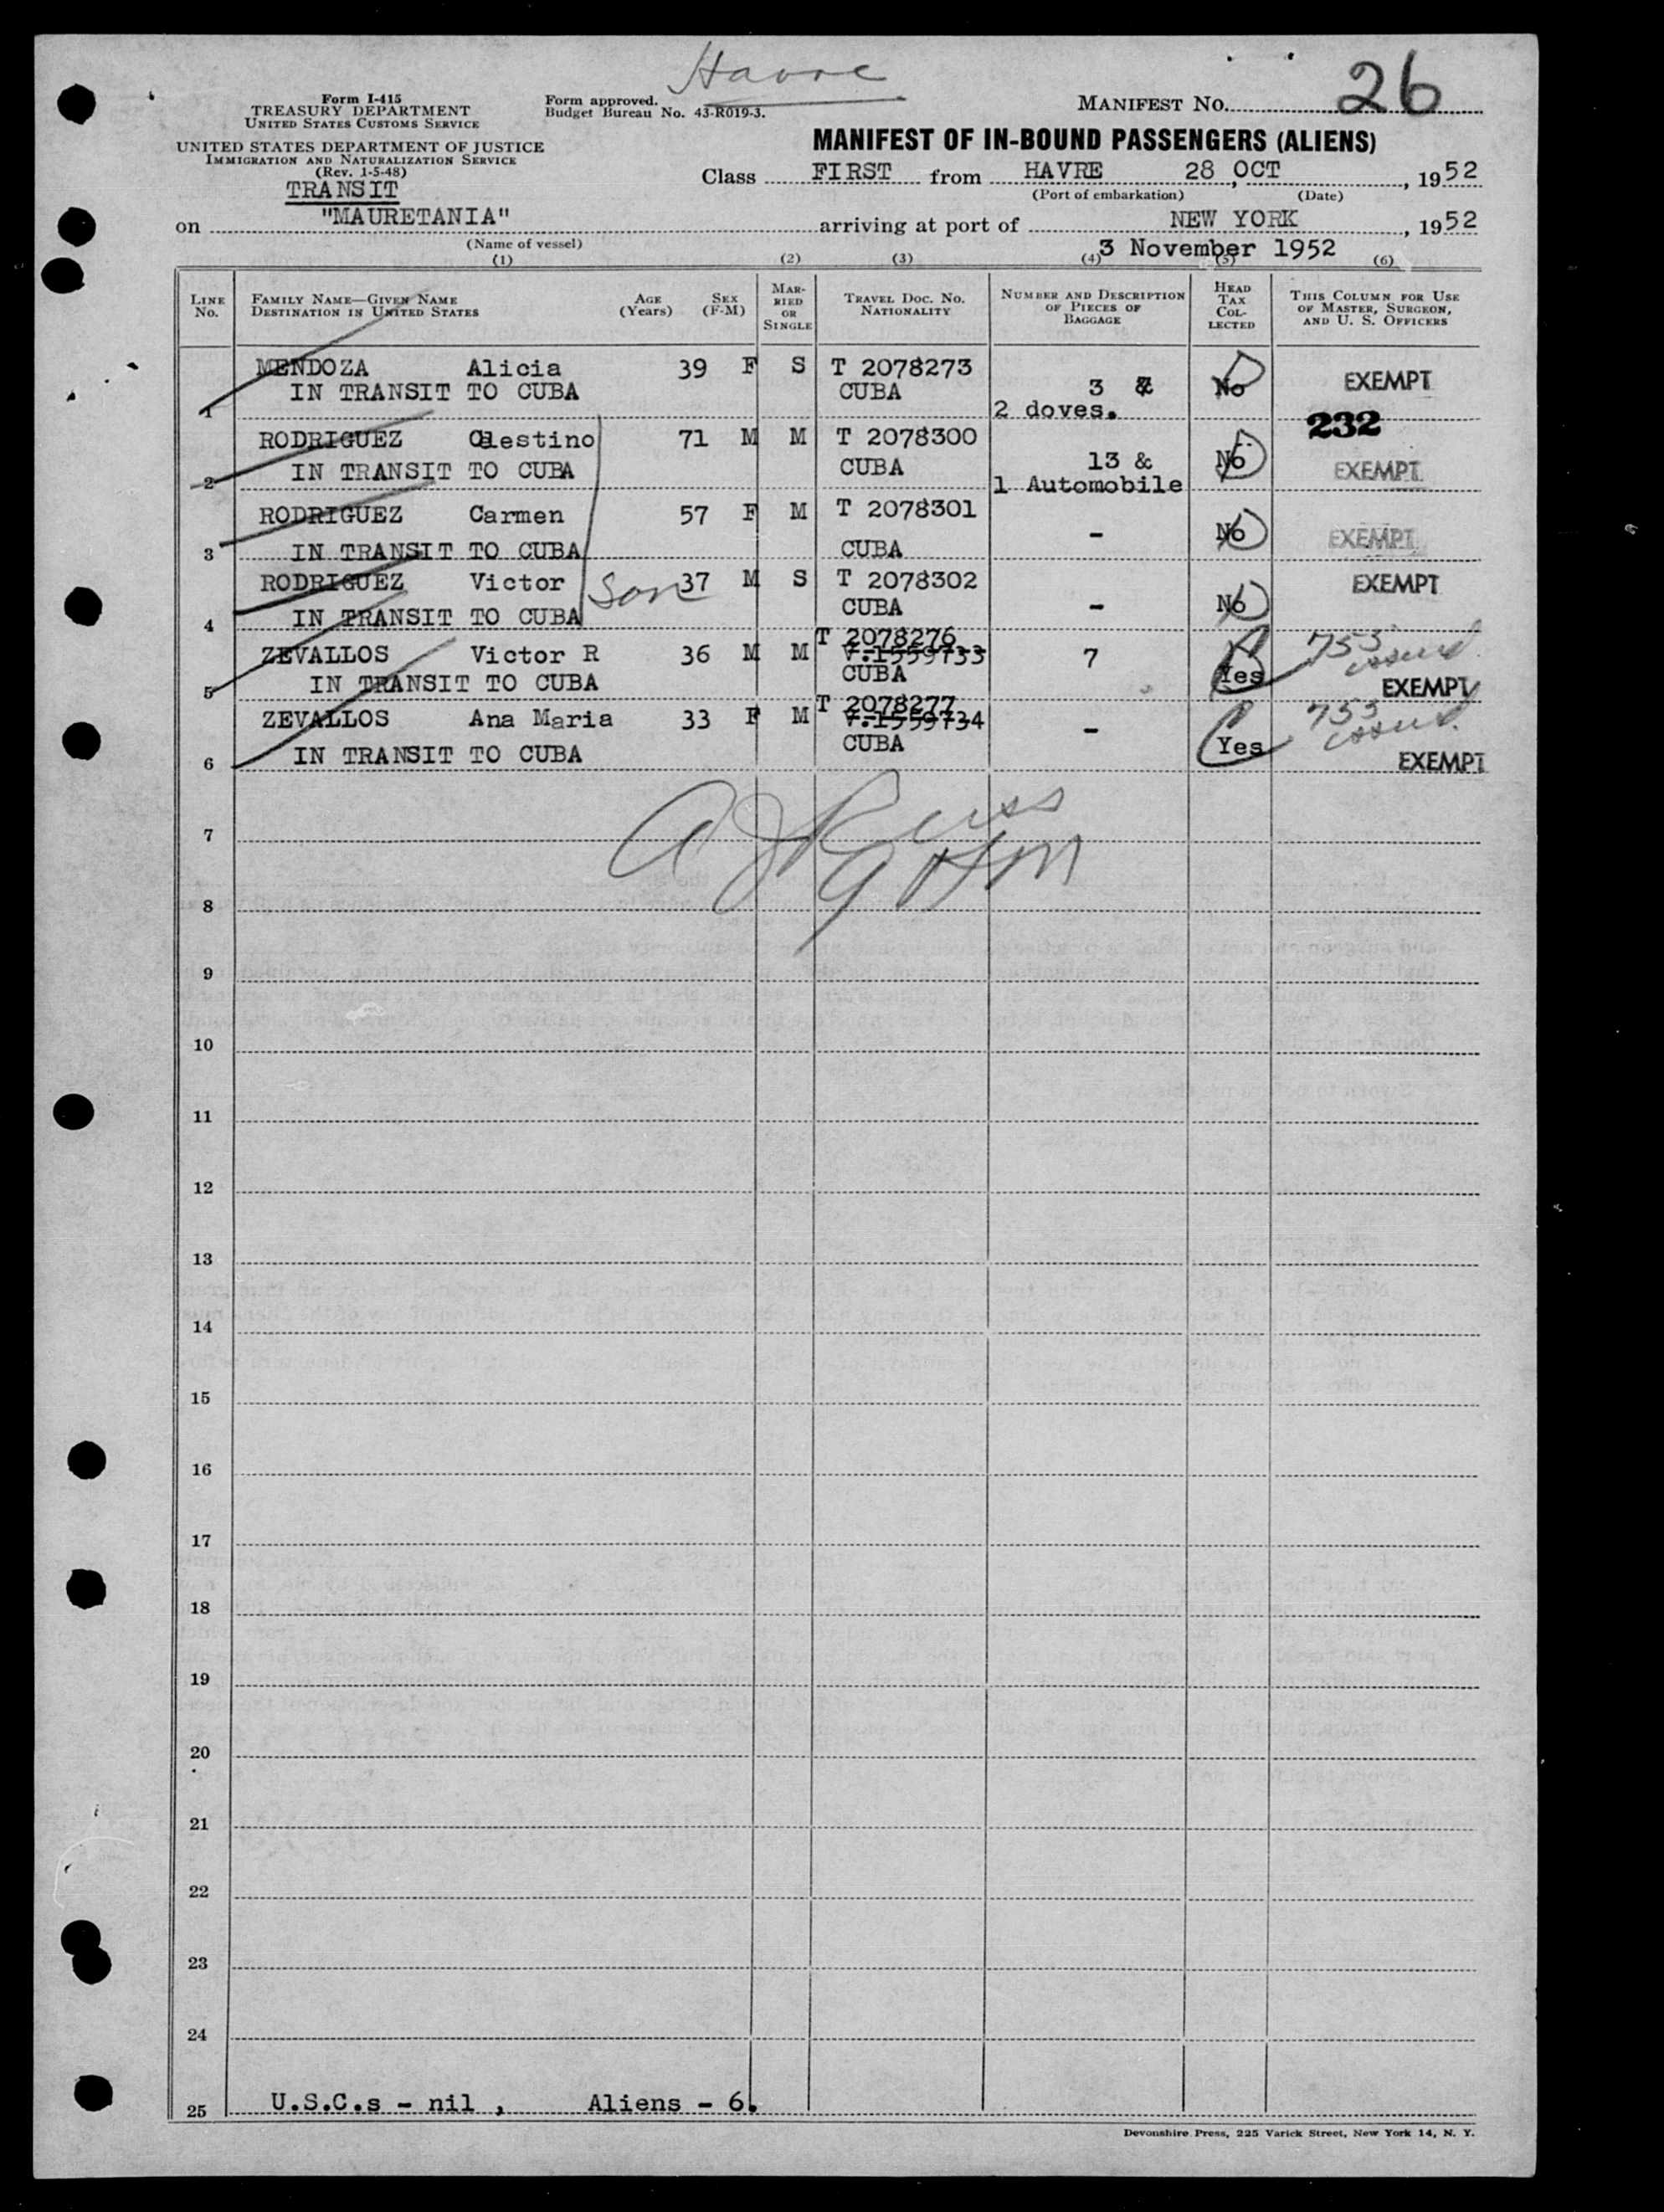 Havre
26
Form I-415
TREASURY DEPARTMENT
UNITED STATES CUSTOMS SERVICE
Form approved.
Budget Bureau No. 43-R019-3.
MANIFEST NO.
UNITED STATES DEPARTMENT OF JUSTICE
IMMIGRATION AND NATURALIZATION SERVICE
(Rev. 1-5-48)
TRANSIT
MANIFEST OF IN-BOUND PASSENGERS (ALIENS)
Class FIRST from HAVRE 28 OCT, 1952
(Port of embarkation) (Date)
on "MAURETANIA" arriving at port of NEW YORK, 1952
(Name of vessel)
3 November 1952
(1) (2) (3) (4) (5) (6)
LINE NO. FAMILY NAME—GIVEN NAME DESTINATION IN UNITED STATES AGE (YEARS) SEX (F-M) MARRIED OR SINGLE TRAVEL DOC. NO. NATIONALITY NUMBER AND DESCRIPTION OF PIECES OF BAGGAGE HEAD TAX COLLECTED THIS COLUMN FOR USE OF MASTER, SURGEON, AND U. S. OFFICERS
MENDOZA Alicia 39 F S T 2078273 3 & No EXEMPT
1 IN TRANSIT TO CUBA CUBA 2 doves.
232
RODRIGUEZ Celestino 71 M M T 2078300 13 & No EXEMPT
2 IN TRANSIT TO CUBA CUBA 1 Automobile
RODRIGUEZ Carmen 57 F M T 2078301 - No EXEMPT
3 IN TRANSIT TO CUBA CUBA
RODRIGUEZ Victor Son 37 M S T 2078302 - No EXEMPT
4 IN TRANSIT TO CUBA CUBA
T 2078276
ZEVALLOS Victor R 36 M M V.1559733 7 Yes 753 issued
5 IN TRANSIT TO CUBA CUBA EXEMPT
T 2078277
ZEVALLOS Ana Maria 33 F M V.1559734 - Yes 753 issued
6 IN TRANSIT TO CUBA CUBA EXEMPT
7
8
9
10
11
12
13
14
15
16
17
18
19
20
21
22
23
24
25 U.S.C.s - nil , Aliens - 6.
Devonshire Press, 225 Varick Street, New York 14, N. Y.